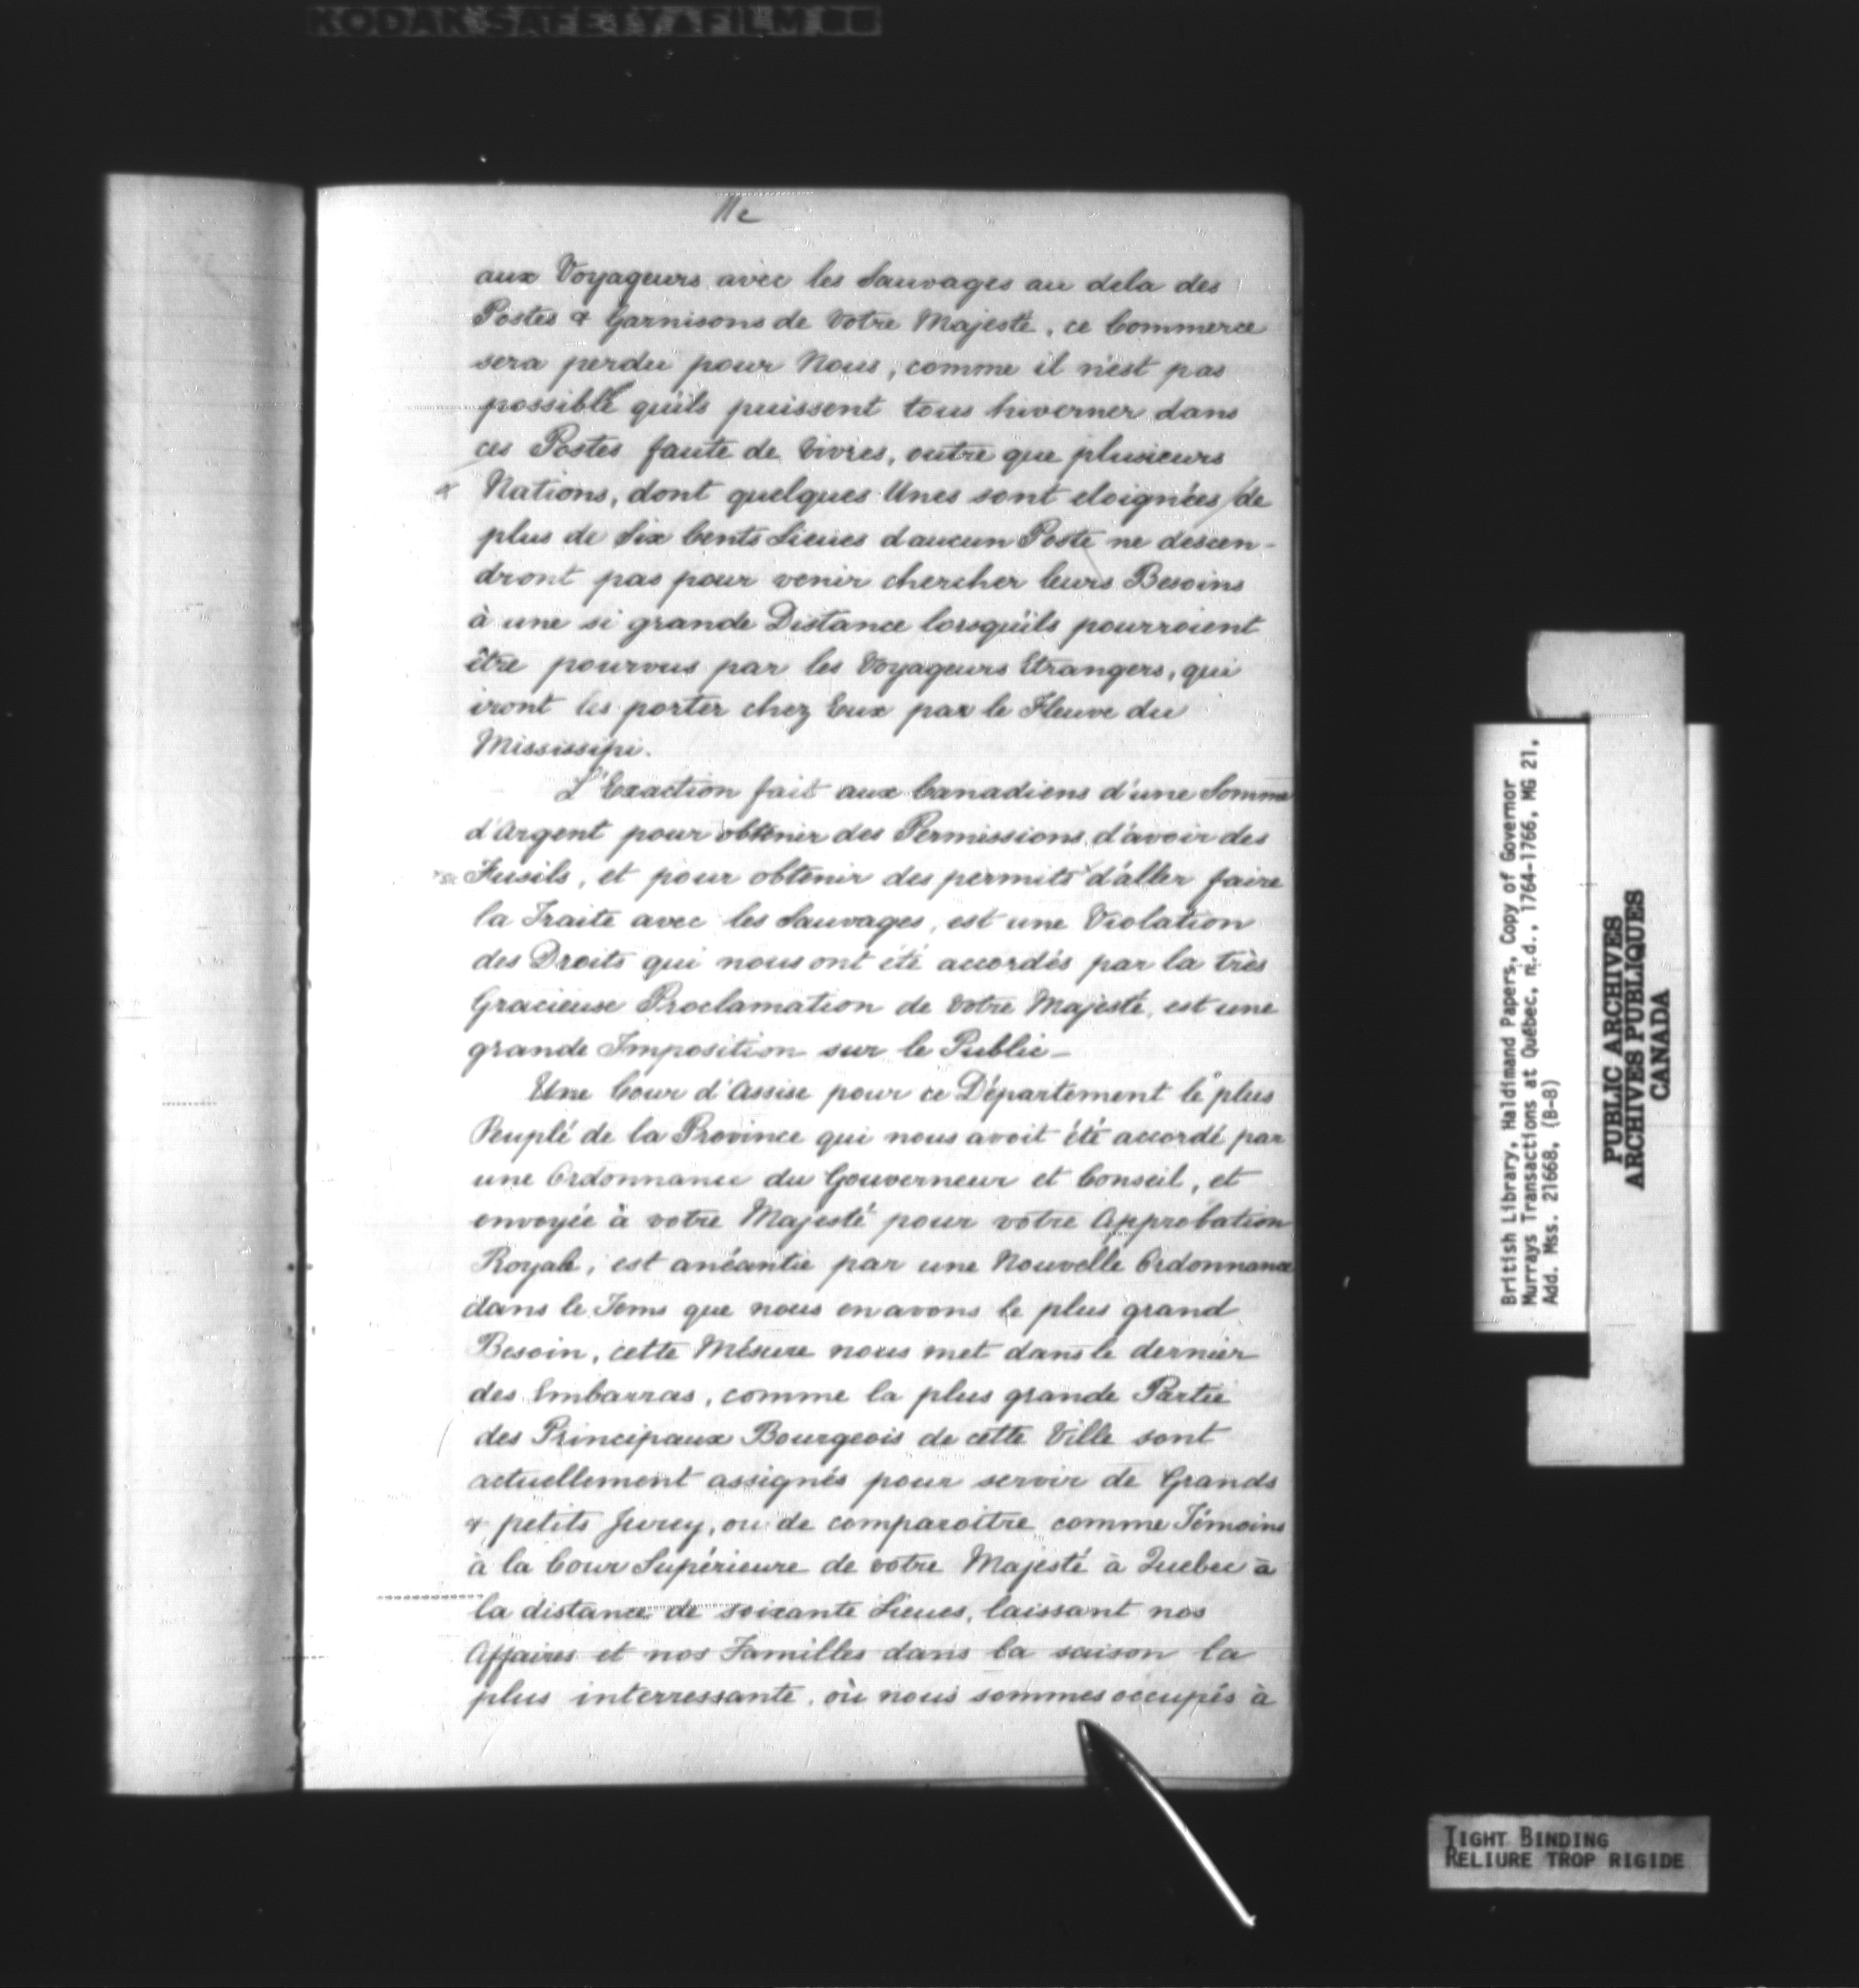 KODAK SAFETY FILM
aux Voyageurs avec les Sauvages au dela des
Postes & Garnisons de Votre Majesté, ce Commerce
sera perdu pour Nous, comme il n'est pas
possible qu'ils puissent tous hiverner dans
ces Postes faute de Vivres, outre que plusieurs
Nations, dont quelques Unes sont eloignées de
plus de Six Cents Lieües daucun Poste ne descen-
dront pas pour venir chercher leurs Besoins
à une si grande Distance lorsqu'ils pourroient
être pourvus par les Voyageurs Etrangers, qui
iront les porter chez Eux par le Fleuve du
Mississipi.
L'Exaction fait aux Canadiens d'une Somme
d'Argent pour obtenir des Permissions d'avoir des
Fusils, et pour obtenir des permits d'aller faire
la Traite avec les Sauvages, est une Violation
des Droits qui nous ont été accordés par la très
Gracieuse Proclamation de Votre Majesté, est une
grande Imposition sur le Public -
Une Cour d'Assise pour ce Département le plus
Peuplé de la Province qui nous avoit été accordé par
une Ordonnance du Gouverneur et Conseil, et
envoyée à votre Majesté pour votre Approbation
Royale, est anéantie par une Nouvelle Ordonnance
dans le Tems que nous en avons le plus grand
Besoin, cette Mésure nous met dans le dernier
des Embarras, comme la plus grande Partie
des Principaux Bourgeois de cette Ville sont
actuellement assignés pour servir de Grands
& petits Jurey, ou de comparoître comme Témoins
à la Cour Supérieure de votre Majesté à Quebec à
la distance de soixante Lieues, laissant nos
Affaires et nos Familles dans la saison la
plus interressante, où nous sommes occupés à
British Library, Haldimand Papers, Copy of Governor
Murrays Transactions at Québec, n.d., 1764-1766, MG 21,
Add. Mss. 21668, (B-8)
PUBLIC ARCHIVES
ARCHIVES PUBLIQUES
CANADA
TIGHT BINDING
RELIURE TROP RIGIDE